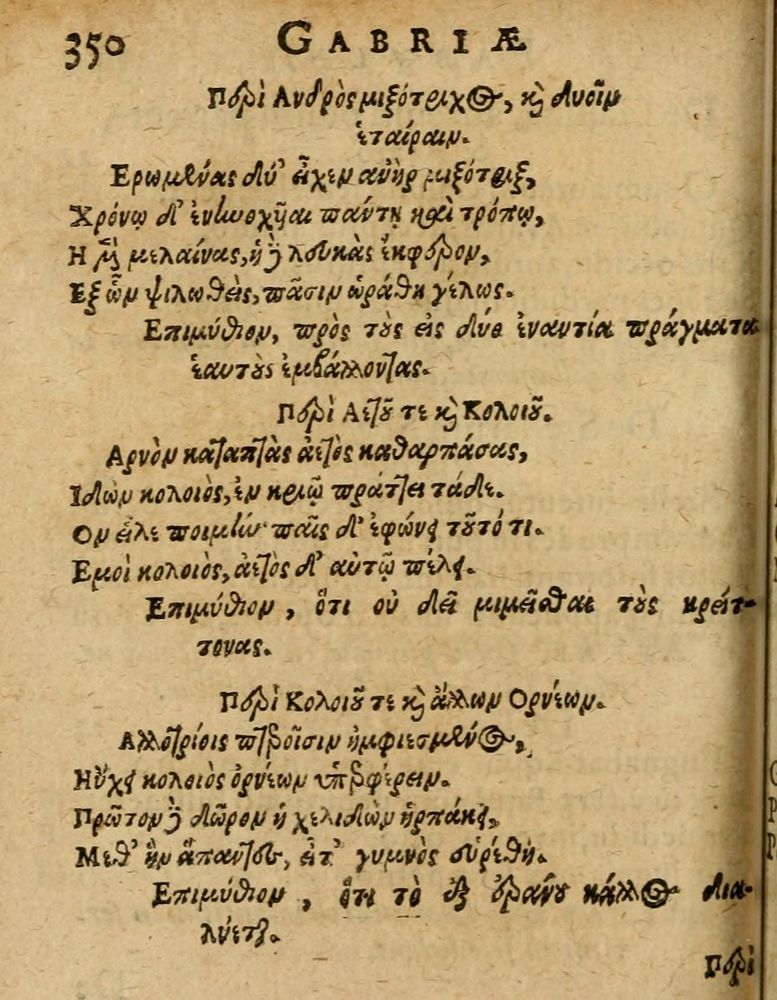 350 GABRIÆ
Περὶ Ανδρὸς μιξότριχος, καὶ δυοῖν
ἑταίραιν.
Ερωμένας δύ' εἶχεν ανὴρ μιξότριξ,
Χρόνῳ δ' ἐνωχῆσαι παντὶ καὶ τρόπῳ,
Η μὲν μελαίνας, ἡ δὲ λευκὰς ἔκφερον,
Εξ ὧν ψιλωθεὶς, πᾶσιν ὡράθη γέλως.
Επιμύθιον, πρὸς τοὺς εἰς δύο ἐναντία πράγματα
ἑαυτοὺς ἐμβάλλοντας.
Περὶ Αετοῦ τε καὶ Κολοιοῦ.
Αρνὸν καταπτὰς ἀετὸς καθαρπάσας,
Ιδὼν κολοιὸς, ἐν κριῷ πράττει τάδε.
Ον εἷλε ποιμήν· παῖς δ' ἐφώνει τοῦτό τι.
Εμοὶ κολοιὸς, ἀετὸς δ' αὑτῷ πέλει.
Επιμύθιον, ὅτι οὐ δεῖ μιμεῖσθαι τοὺς κρείτ-
τονας.
Περὶ Κολοιοῦ τε καὶ ἄλλων Ορνέων.
Αλλοτρίοις πτεροῖσιν ἠμφιεσμένος,
Ηὔχει κολοιὸς ὀρνέων ὑπερφέρειν.
Πρῶτον δὲ δῶρον ἡ χελιδὼν ἡρπάκει,
Μεθ' ἣν ἅπαντες, εἶτ' γυμνὸς εὑρέθη.
Επιμύθιον, ὅτι τὸ ἐξ ἐράνου κάλλος δια-
λύεται.
Περὶ